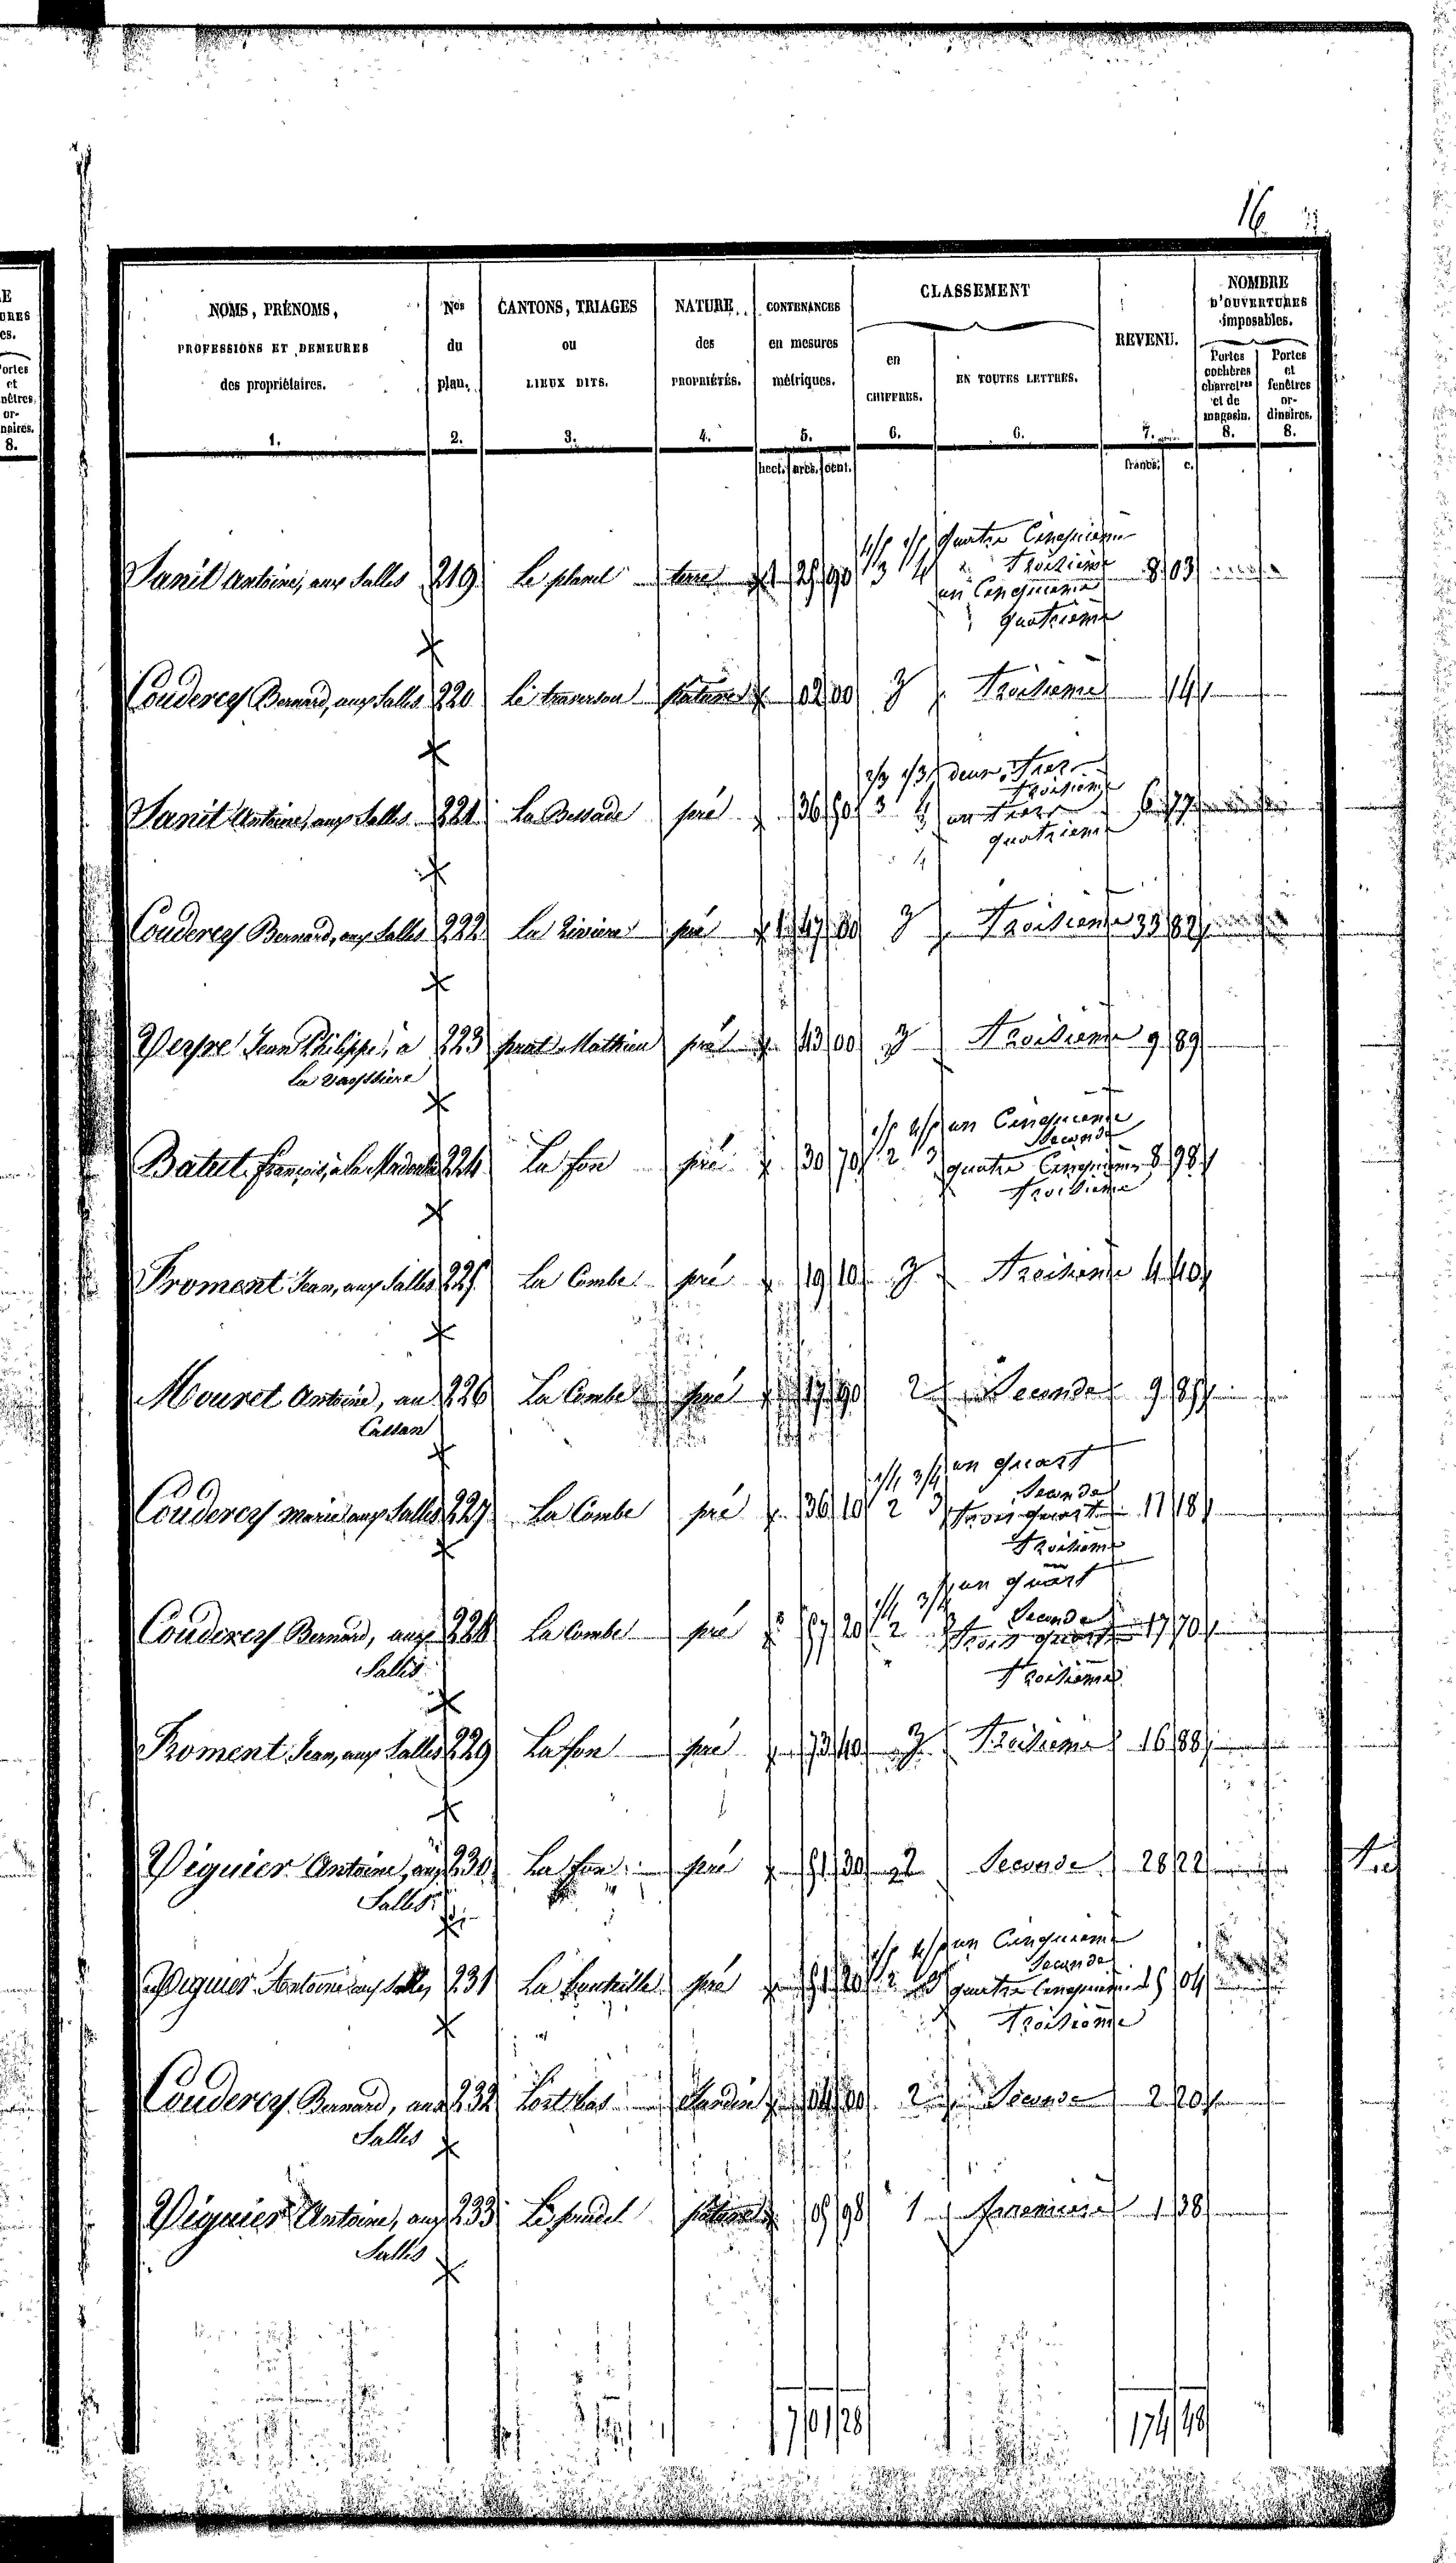 16
NOMS, PRÉNOMS, PROFESSIONS ET DEMEURES des propriétaires. 1.
Nos du plan. 2.
CANTONS, TRIAGES ou LIEUX DITS. 3.
NATURE des PROPRIÉTÉS. 4.
CONTENANCES en mesures métriques. 5.
CLASSEMENT
en CHIFFRES. 6.
EN TOUTES LETTRES. 6.
REVENU. 7.
NOMBRE D'OUVERTURES imposables.
Portes cochères charretres et de magasin. 8.
Portes et fenêtres ordinaires. 8.
hect. ares. cent. francs. c.
Antoine, aux Salles 219 terre 1 90 3 4 quatre Cinquième Troisième un Cinquième quatrième 8 03
Couderey Bernard, aux Salles 220 pature 02 00 3 Troisième 14
Antoine, aux Salles 221 La Bessade pré 36 3 4 deux Tiers Troisième un Tiers quatrième 6 77
Couderey Bernard, aux Salles 222 La Rivière pré 1 47 3 Troisième 33 82
Jean Philippe, à La Vayssière 223 prat Mathieu pré 43 00 3 Troisième 9 89
Batut François, à la 224 La fon pré 30 70 2 3 un Cinquième Seconde quatre Cinquième Troisième 8 98
Froment Jean, aux Salles 225 La Combe pré 19 10 3 Troisième 4 40
Mouret Antoine, au Cassan 226 La Combe pré 17 90 2 Seconde 9 85
Couderey Marie aux Salles 227 La Combe pré 36 10 2 3 un quart Seconde trois quart Troisième 11 18
Couderey Bernard, aux Salles 228 La Combe pré 57 20 2 3 un quart Seconde trois quart Troisième 17 70
Froment Jean, aux Salles 229 La fon pré 73 40 3 Troisième 16 88
Viguier Antoine, aux Salles 230 La fon pré 51 30 2 Seconde 28 22
Viguier Antoine aux Salles 231 pré 51 2 3 un Cinquième Seconde quatre Cinquième Troisième 15 04
Couderey Bernard, aux Salles 232 Jardin 04 00 2 Seconde 2 20
Viguier Antoine, aux Salles 233 pature 05 98 1 premiere 1 38
7 01 28 174 48